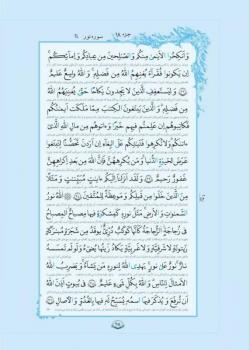 جزء ۱۸
سوره نور
وَأَنكِحُوا الْأَيَامَىٰ مِنكُمْ وَالصَّالِحِينَ مِنْ عِبَادِكُمْ وَإِمَائِكُمْ
إِن يَكُونُوا فُقَرَاءَ يُغْنِهِمُ اللَّهُ مِن فَضْلِهِ وَاللَّهُ وَاسِعٌ عَلِيمٌ
وَلْيَسْتَعْفِفِ الَّذِينَ لَا يَجِدُونَ نِكَاحًا حَتَّىٰ يُغْنِيَهُمُ اللَّهُ
مِن فَضْلِهِ وَالَّذِينَ يَبْتَغُونَ الْكِتَابَ مِمَّا مَلَكَتْ أَيْمَانُكُمْ
فَكَاتِبُوهُمْ إِنْ عَلِمْتُمْ فِيهِمْ خَيْرًا وَآتُوهُم مِّن مَّالِ اللَّهِ الَّذِي
آتَاكُمْ وَلَا تُكْرِهُوا فَتَيَاتِكُمْ عَلَى الْبِغَاءِ إِنْ أَرَدْنَ تَحَصُّنًا لِّتَبْتَغُوا
عَرَضَ الْحَيَاةِ الدُّنْيَا وَمَن يُكْرِههُّنَّ فَإِنَّ اللَّهَ مِن بَعْدِ إِكْرَاهِهِنَّ
غَفُورٌ رَّحِيمٌ وَلَقَدْ أَنزَلْنَا إِلَيْكُمْ آيَاتٍ مُّبَيِّنَاتٍ وَمَثَلًا
مِّنَ الَّذِينَ خَلَوْا مِن قَبْلِكُمْ وَمَوْعِظَةً لِّلْمُتَّقِينَ اللَّهُ نُورُ
السَّمَاوَاتِ وَالْأَرْضِ مَثَلُ نُورِهِ كَمِشْكَاةٍ فِيهَا مِصْبَاحٌ الْمِصْبَاحُ
فِي زُجَاجَةٍ الزُّجَاجَةُ كَأَنَّهَا كَوْكَبٌ دُرِّيٌّ يُوقَدُ مِن شَجَرَةٍ مُّبَارَكَةٍ
زَيْتُونَةٍ لَّا شَرْقِيَّةٍ وَلَا غَرْبِيَّةٍ يَكَادُ زَيْتُهَا يُضِيءُ وَلَوْ لَمْ تَمْسَسْهُ
نَارٌ نُّورٌ عَلَىٰ نُورٍ يَهْدِي اللَّهُ لِنُورِهِ مَن يَشَاءُ وَيَضْرِبُ اللَّهُ
الْأَمْثَالَ لِلنَّاسِ وَاللَّهُ بِكُلِّ شَيْءٍ عَلِيمٌ فِي بُيُوتٍ أَذِنَ اللَّهُ
أَن تُرْفَعَ وَيُذْكَرَ فِيهَا اسْمُهُ يُسَبِّحُ لَهُ فِيهَا بِالْغُدُوِّ وَالْآصَالِ